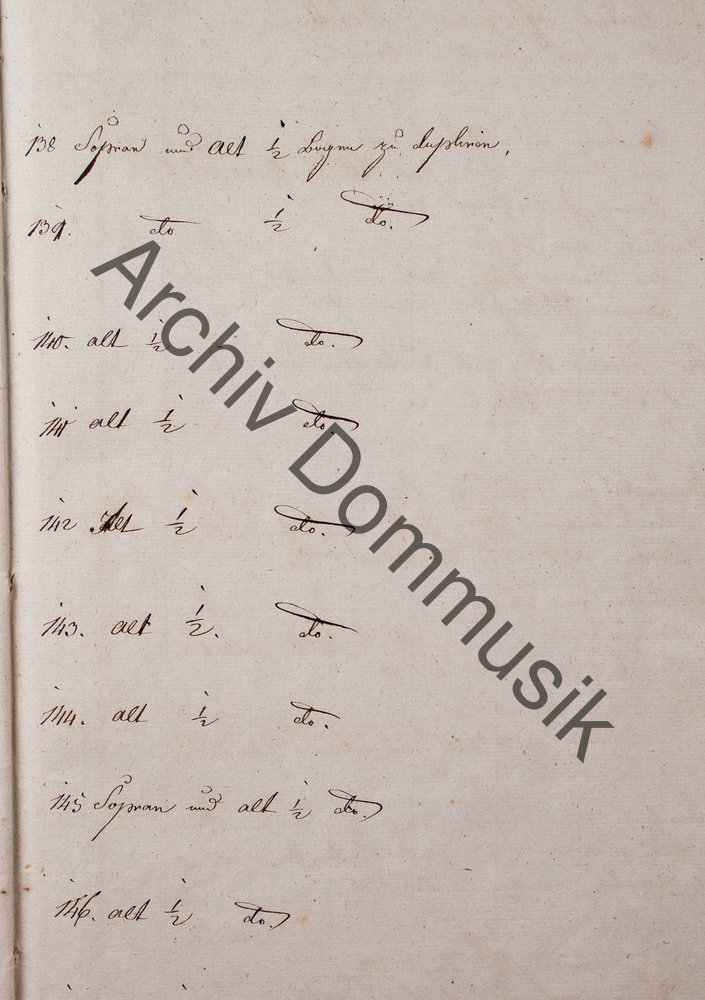 138 Sopran und alt ½ Bogen zu dupliren,
139. do ½ do.
140. alt ½ do.
141 alt ½ do.
142 Alt ½ do.
143. alt ½. do.
144. alt ½ do.
145 Sopran und alt ½ do.
146. alt ½ do.
Archiv Dommusik